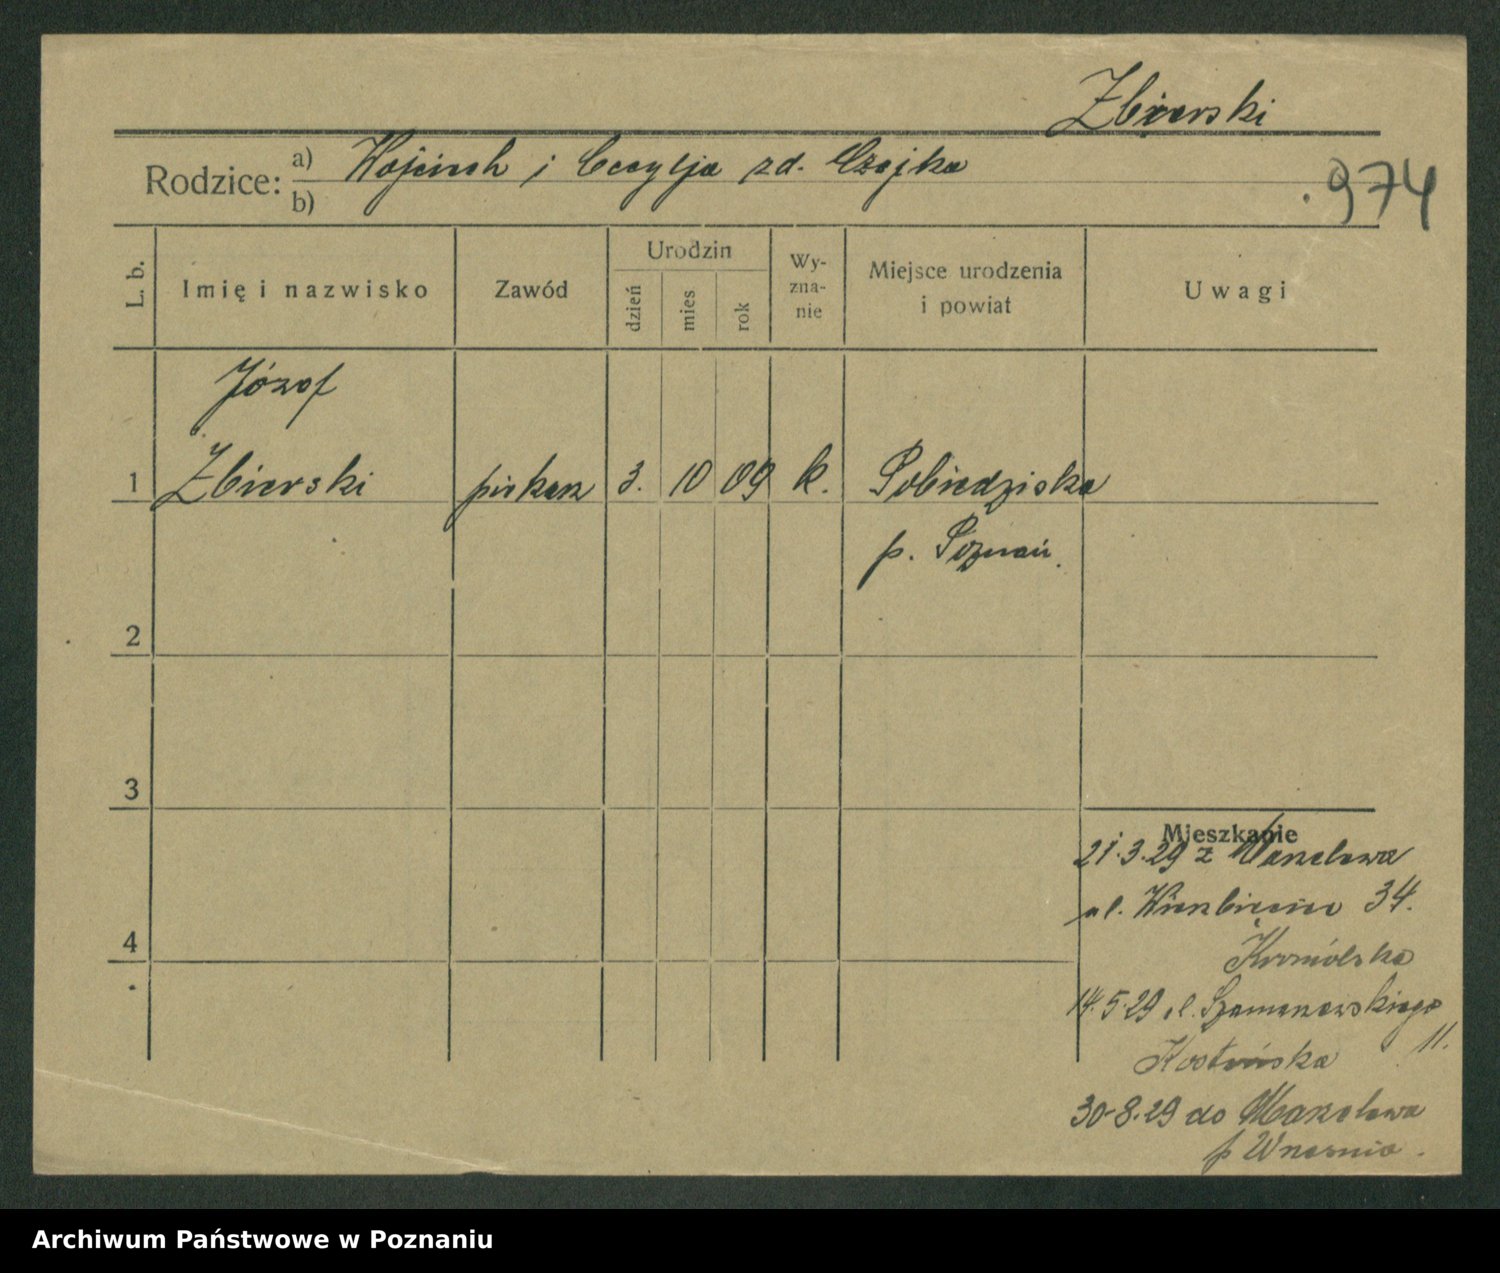 Zbierski
Rodzice: a) Wojciech i Cecylja zd. Czajka
b)
974
L. b.
Imię i nazwisko
Zawód
Urodzin
dzień
mies
rok
Wy-
zna-
nie
Miejsce urodzenia
i powiat
Uwagi
Józef
1 Zbierski piekarz 3. 10 09 k. Pobiedziska
p. Poznań.
2
3
Mieszkanie
21.3.29 z
ul. Wierzbięcice 34.
4
14.5.29 ul. Szamarzewskiego
11.
30-8.29 do
p Wrześnio.
Archiwum Państwowe w Poznaniu